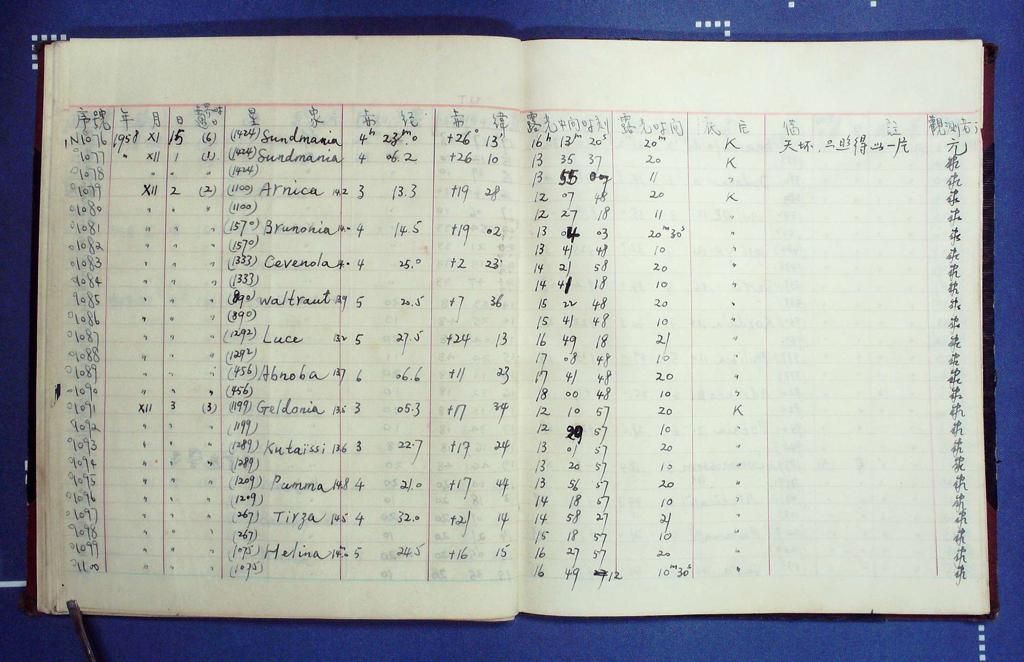 序號 年 月 日 星 象 赤 經 赤 緯 露光中間時刻 露光時间 底片 備 註 觀測者
N1076 1958 XI 15 (6) (1424) Sundmania 4h 28m.0 +26° 13' 16h 13m 20s 20m K 天坏,只照得出一片 元
1077 " XII 1 (1) (1424) Sundmania 4 06.2 +26 10 13 35 37 20 K
1078 " " " (1424) 13 55 07 11 "
1079 XII 2 (2) (1100) Arnica 14.2 3 13.3 +19 28 12 07 48 20 K
1080 " " " (1100) 12 27 18 11 "
1081 " " " (1570) Brunonia 14.0 4 14.5 +19 02 13 04 03 20m30s "
1082 " " " (1570) 13 41 48 10 "
1083 " " " (1333) Cevenola 4 25.0 +2 23 14 21 58 20 "
1084 " " " (1333) 14 41 18 10 "
1085 " " " (890) Waltraut 13.9 5 20.5 +7 36 15 22 48 20 "
1086 " " " (890) 15 41 48 10 "
1087 " " " (1292) Luce 13.2 5 27.5 +24 13 16 49 18 21 "
1088 " " " (1292) 17 08 48 10 "
1089 " " " (456) Abnoba 13.7 6 06.6 +11 23 17 41 48 20 "
1090 " " " (456) 18 00 48 10 "
1091 XII 3 (3) (1199) Geldonia 13.6 3 05.3 +17 34 12 10 57 20 K
1092 " " " (1199) 12 29 57 10 "
1093 " " " (1289) Kutaïssi 13.6 3 22.7 +17 24 13 01 57 20 "
1094 " " " (1289) 13 20 57 10 "
1095 " " " (1209) Pumma 14.8 4 21.0 +17 44 13 56 57 20 "
1096 " " " (1209) 14 18 57 10 "
1097 " " " (267) Tirza 14.5 4 32.0 +21 14 14 58 27 21 "
1098 " " " (267) 15 18 57 10 "
1099 " " " (1075) Helina 14.0 5 24.5 +16 15 16 27 57 20 "
1100 " " " (1075) 16 49 12 10m30s "